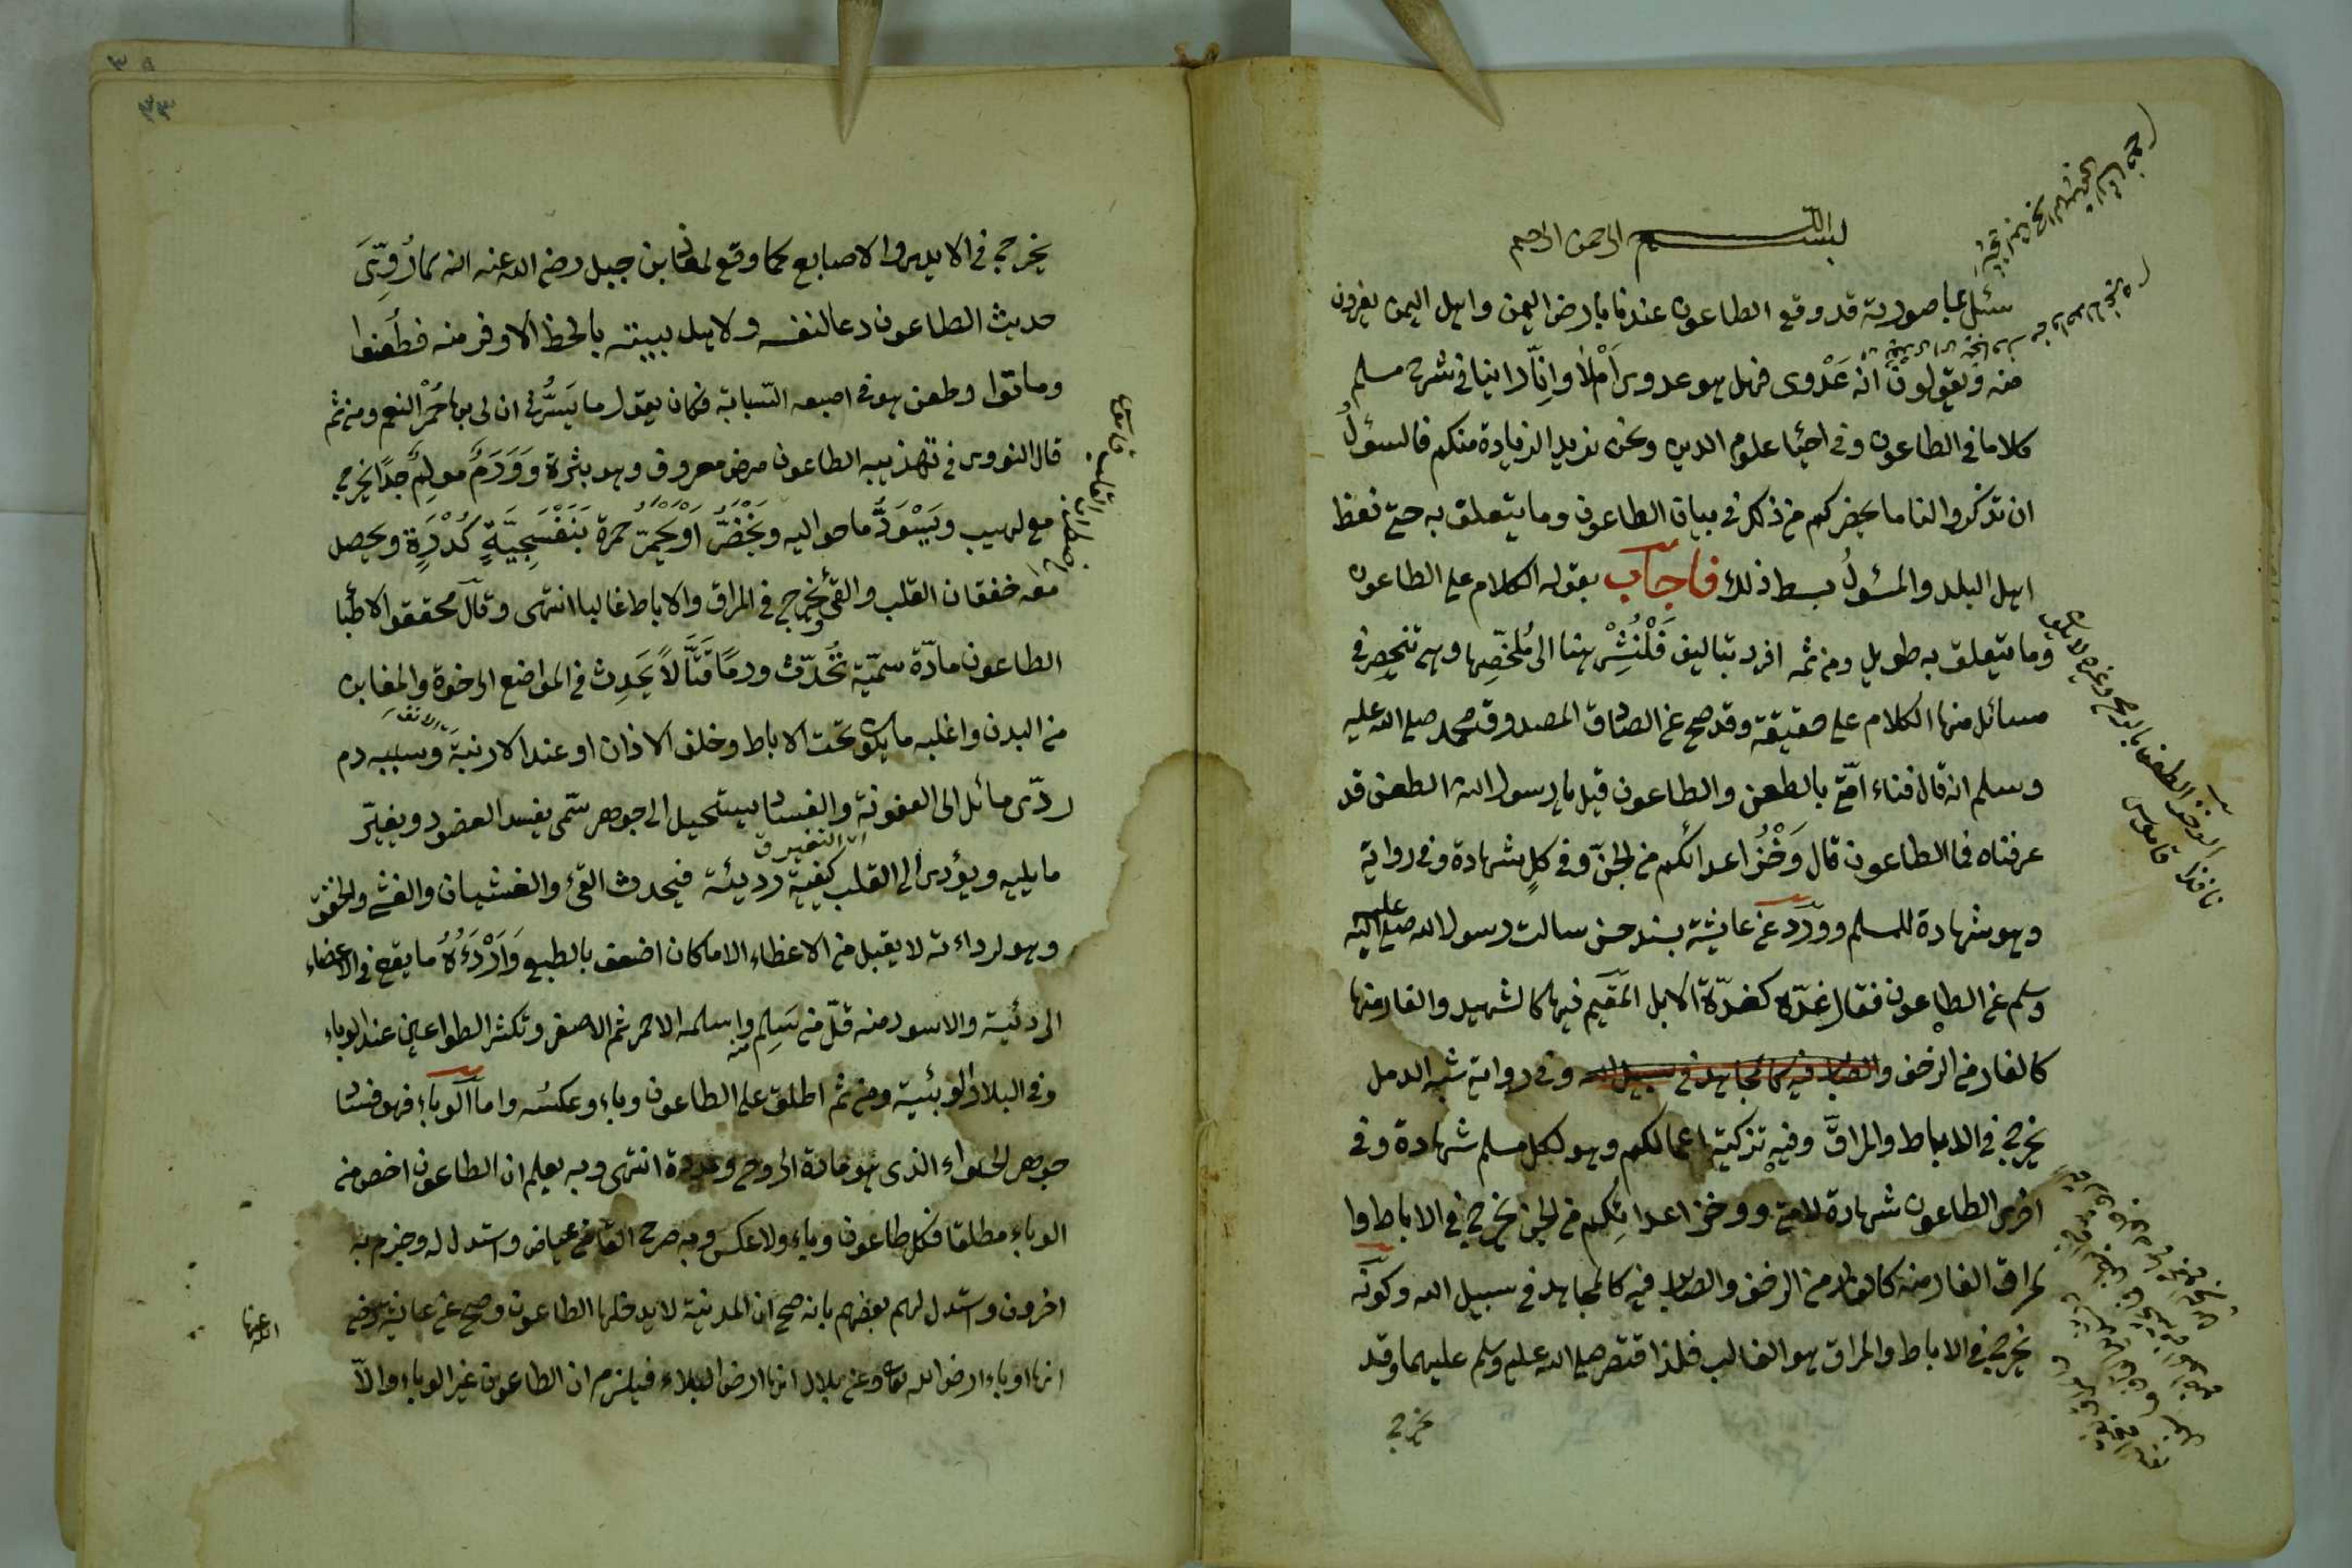 بسم الله الرحمن الرحيم
سئل عبا صورته قد وقع الطاعون عندنا بارض اليمن واهل اليمن يفرون
منه ويقولون انه عَدْوى فهل هو عدوى اَمْ لا وانّا راينا في شرح مسلم
كلاما في الطاعون وفي احيا علوم الدين ونحن نريد الزيادة منكم فالسؤلُ
ان تذكروا لنا ما يحضركم من ذكر في بيان الطاعون وما يتعلق به حتى نعظ
اهل البلد والمسئولُ بسط ذلك فاجاب بقوله الكلام على الطاعون
وما يتعلق به طويل ومن ثمه افرد بتاليف فَلْنُشِرْ هنا الى مُلخّصِها وهي تنحصر في
مسائل منها الكلام على حقيقته وقد صح عن الصادق المصدوق محمد صلى الله عليه
وسلم انه قال فناء امّتي بالطعن والطاعون قيل يا رسول الله الطعن قد
عرفناه فما الطاعون قال وَخْزُ اعدائكم من الجنّ وفي كلٍ شهادة وفي رواية
وهو شهادة للمسلم ووَرَد عن عائشة بسند حسن سالت رسول الله صلى الله عليه
وسلم عن الطاعون فقال غدّة كغدّة الابل المقيم فيها كالشهيد والفار منها
كالفار من الزحف والصابر فيه كالمجاهد في سبيل الله وفي رواية شبه الدمل
يخرج في الاباط والمراقّ وفيه تزكية اعمالكم وهو لكل مسلم شهادة وفي
اخرى الطاعون شهادة لامتي ووخز اعدائِكم من الجن يخرج في الاباط وا
لمراق الفار منه كالفار من الزحف والصابر فيه كالمجاهد في سبيل الله وكونه
يخرج في الاباط والمراق هو الغالب فلذا اقتصر صلى الله عليه وسلم عليهما وقد
يخرج
الوخز الطعن بالرمح وغيره لا يكون
نافذا قاموس
يخرج في الايدي والاصابع كما وقع لمعاذ بن جبل رضي الله عنه انه لما رُوِّيَ
حديث الطاعون دعا لنفسه ولاهل بيته بالحظ الاوفر منه فطُعنوا
وماتوا وطعن هو في اصبعه السبابة فكان يقول ما يَسُرُّني ان لي بها حُمْرَ النعم ومن ثم
قال النووي في تهذيبه الطاعون مرض معروف وهو بثرة وَوَرَمٌ مولِمٌ جدًّا يخرج
مع لهيب ويَسْوَدُّ ما حواليه ويَخْضَرُّ اَوْ يَحْمَرّ حمرة بَنَفْسَجِيَّةٍ كُدْرَةٍ ويحصل
معه خفقان القلب والقئ ويخرج في المراق والاباط غالبا انتهى وقال محققوا الاطبا
الطاعون مادّة سمّيّة تُحَدّث ورمًا قَتّالًا يَحدِث في المواضع الرخوة والمغابن
من البدن واغلبه ما يكون تحت الاباط وخلف الاذان او عند الارنبة وسببه دم
ردّى مائل الى العفونة والفساد يستحيل الى جوهر سمّى يفسد العضو ويغيّر
ما يليه ويؤدى الى القلب كيفية رديئة فيحدث القئ والغشيان والغشى والخفق
وهو لرداءته لا يقبل من الاعضاء الا ما كان اضعف بالطبع وَاَرْدَءُهُ ما يقع في الاعضاء
الرئيسة والاسود منه قلّ من سَلِم منه واسلمه الاحمر ثم الاصفر وتكثر الطواعين عند الوباء
وفي البلاد الوبئية ومن ثم اطلق على الطاعون وباء وعكسُه واما الوباء فهو فساد
جوهر الهواء الذى هو مادة الروح ومدده انتهى وبه يعلم ان الطاعون اخص من
الوباء مطلقا فكل طاعون وباء ولا عكس وبه صرح القاضى عياض واستدل له وجزم به
اخرون واستدل لهم بعضهم بانه صح ان المدينة لا يدخلها الطاعون وصح عن عائشة رضى
الله عنها
انها اوباء ارض الله تعالى وعن بلال انها ارض البلاء فيلزم ان الطاعون غير الوباء والّا
اضطراب القلب قاموس
ای التغیر ق
٣٣